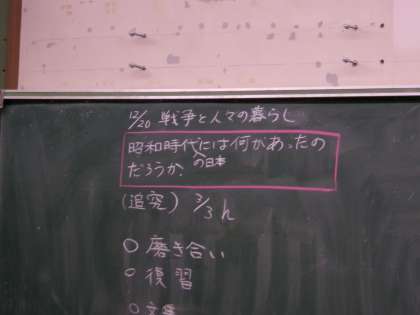 12/20 戦争と人々の暮らし
昭和時代には何があったの
の日本
だろうか。
(追究) 3/3h
○ 磨き合い
○ 復習
○